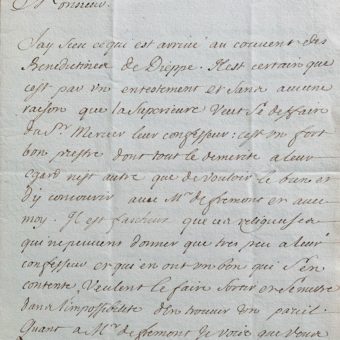 Monsieur.
Jay sceu ce qui est arrivé au couvent des
Benedictines de Dieppe. Il est certain que
cest par un entestement et sans aucune
raison que la superieure veut se deffaire
du Sr. Mercier leur confesseur: cest un fort
bon prestre dont tout le demerite a leur
egard n'est autre que de vouloir le bien et
d'y concourir avec Mr. de fremont et avec
moy. Il est facheux que ces religieuses
qui ne peuvent donner que tres peu a leur
confesseur et qui en ont un bon qui s'en
contente, veulent le faire sortir et se mettre
dans l'impossibilité d'en trouver un pareil.
Quant a Mr. de fremont Je voie que vous